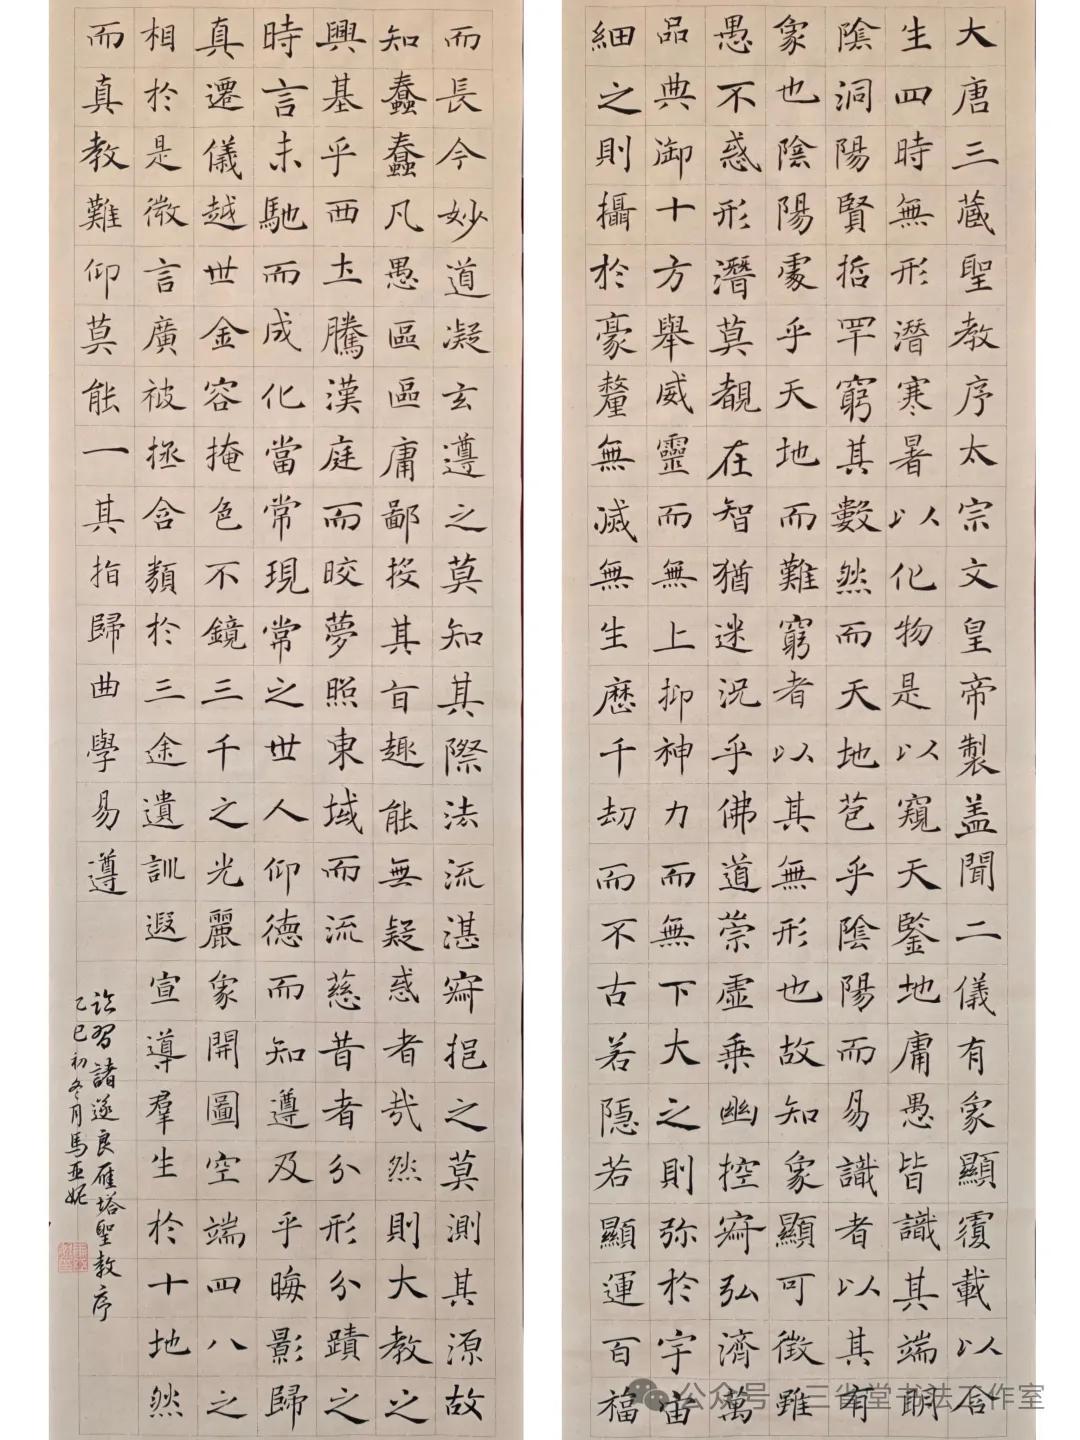 大唐三藏聖教序太宗文皇帝製盖聞二儀有象顯覆載以含
生四時無形潛寒暑以化物是以窺天鑒地庸愚皆識其端明
陰洞陽賢哲罕窮其數然而天地苞乎陰陽而易識者以其有
象也陰陽處乎天地而難窮者以其無形也故知象顯可徵雖
愚不惑形潛莫覩在智猶迷況乎佛道崇虛乘幽控寂弘濟萬
品典御十方舉威靈而無上抑神力而無下大之則弥於宇宙
細之則攝於豪釐無滅無生歷千劫而不古若隱若顯運百福
而長今妙道凝玄遵之莫知其際法流湛寂挹之莫測其源故
知蠢蠢凡愚區區庸鄙投其旨趣能無疑惑者哉然則大教之
興基乎西土騰漢庭而皎夢照東域而流慈昔者分形分蹟之
時言未馳而成化當常現常之世人仰德而知遵及乎晦影歸
真遷儀越世金容掩色不鏡三千之光麗象開圖空端四八之
相於是微言廣被拯含類於三途遺訓遐宣導羣生於十地然
而真教難仰莫能一其指歸曲學易遵
臨習諸遂良雁塔聖教序
乙巳初冬月馬亞妮
公众号 · 三省堂书法工作室